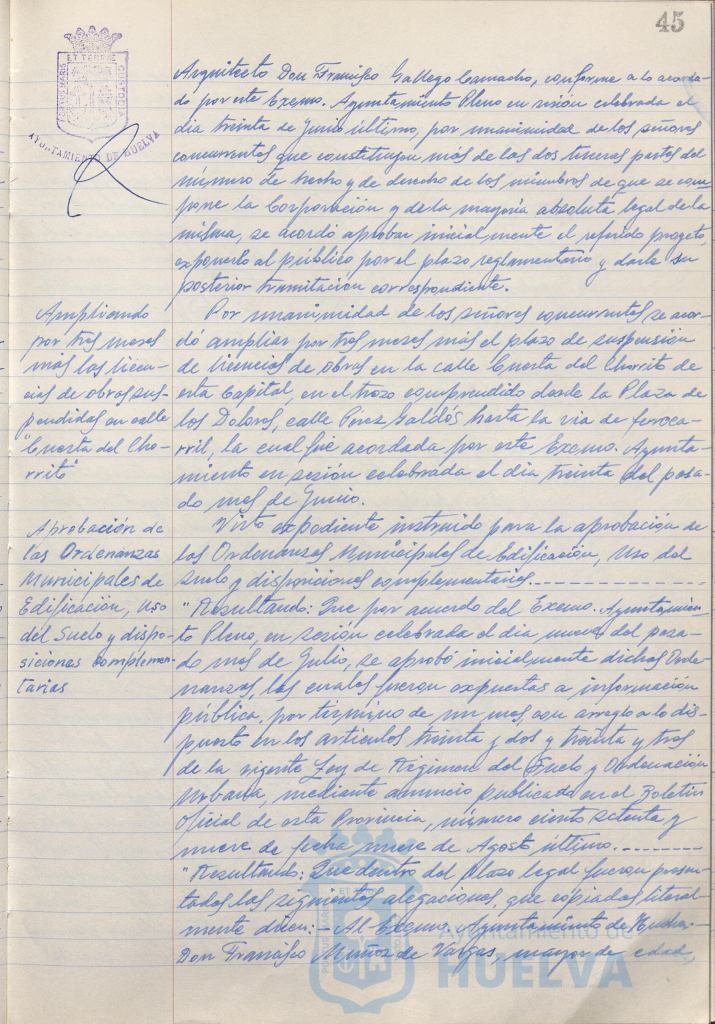 45
PORTUS MARIS ET TERRE CUSTODIA
AYUNTAMIENTO DE HUELVA
Arquitecto Don Francisco Gallego Camacho, conforme a lo acorda-
do por este Excmo. Ayuntamiento Pleno en sesión celebrada el
dia treinta de Junio último, por unanimidad de los señores
concurrentes que constituyen más de las dos terceras partes del
número de hecho y de derecho de los miembros de que se com-
pone la Corporación y de la mayoría absoluta legal de la
misma, se acordó aprobar inicialmente el referido proyecto,
exponerlo al público por el plazo reglamentario y darle su
posterior tramitación correspondiente.
Ampliando
por tres meses
más las licen-
cias de obras sus-
pendidas en calle
"Cuesta del Cho-
rrito"
Por unanimidad de los señores concurrentes se acor-
dó ampliar por tres meses más el plazo de suspensión
de licencias de obras en la calle Cuesta del Chorrito de
esta Capital, en el trozo comprendido desde la Plaza de
los Dolores, calle Pérez Galdós hasta la via de ferroca-
rril, la cual fué acordada por este Excmo. Ayunta-
miento en sesión celebrada el dia treinta del pasa-
do mes de Junio.
Aprobación de
las Ordenanzas
Municipales de
Edificación, Uso
del Suelo y dispo-
siciones complemen-
tarias
Visto expediente instruido para la aprobación de
las Ordenanzas Municipales de Edificación, Uso del
Suelo y disposiciones complementarias.------------
"Resultando: Que por acuerdo del Excmo. Ayuntamien-
to Pleno, en sesión celebrada el dia nueve del pasa-
do mes de Julio, se aprobó inicialmente dichas Orde-
nanzas, las cuales fueron expuestas a información
pública, por término de un mes, con arreglo a lo dis-
puesto en los artículos treinta y dos y treinta y tres
de la vigente Ley de Régimen del Suelo y Ordenación
Urbana, mediante anuncio publicado en el Boletin
Oficial de esta Provincia, número ciento setenta y
nueve de fecha nueve de Agosto último.---------
"Resultando: Que dentro del plazo legal fueron presen-
tadas las siguientes alegaciones, que copiadas literal-
mente dicen: - Al Excmo. Ayuntamiento de Huelva.-
Don Francisco Muñoz de Vargas, mayor de edad,
Ayuntamiento de
HUELVA